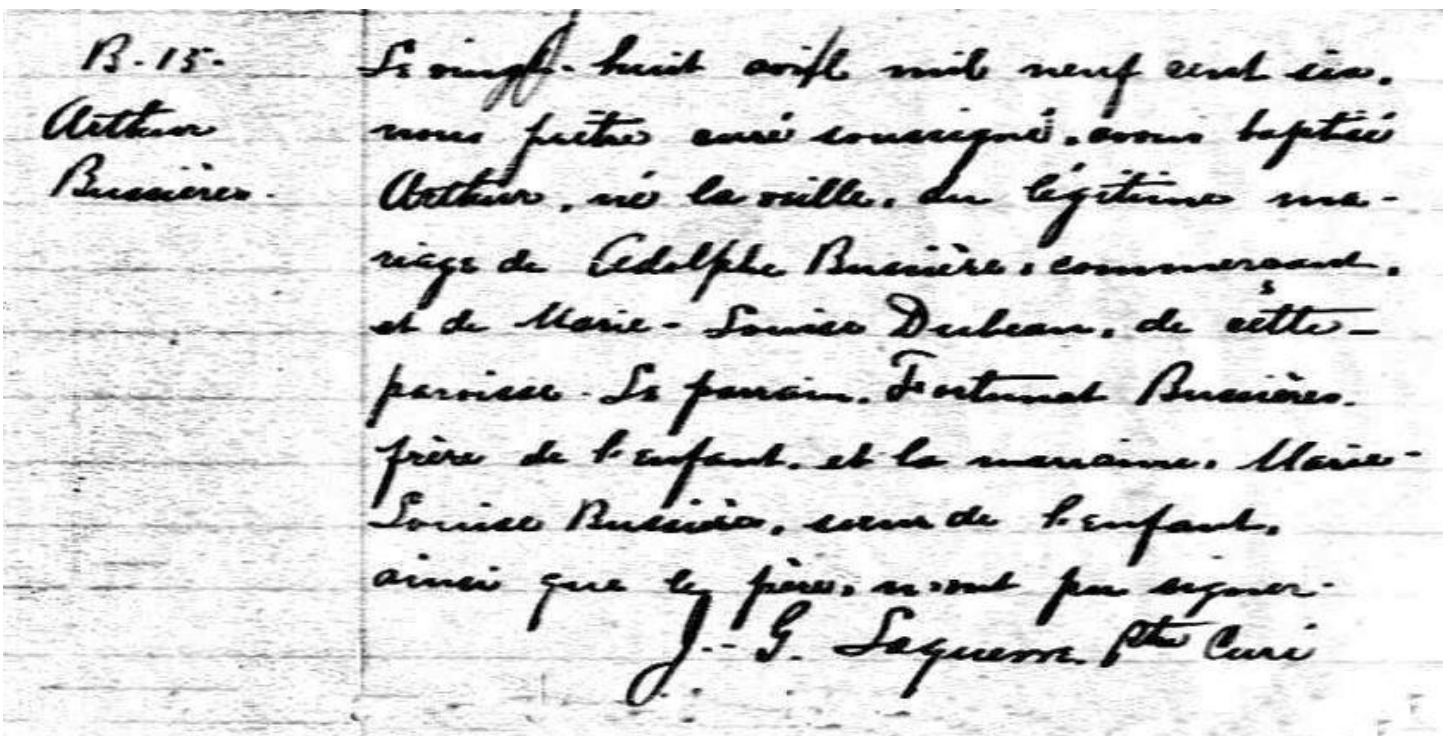 B. 15.
Arthur
Bussières.
Le vingt-huit avril mil neuf cent six,
nous prêtre curé soussigné, avons baptisé
Arthur, né la veille, du légitime ma-
riage de Adolphe Bussière, commerçant,
et de Marie-Louise Dubeau, de cette
paroisse. Le parrain, Fortunat Bussières,
frère de l'enfant, et la marraine, Marie-
Louise Bussière, soeur de l'enfant,
ainsi que le père, n'ont pu signer.
J.-G. Laquerre Ptre Curé